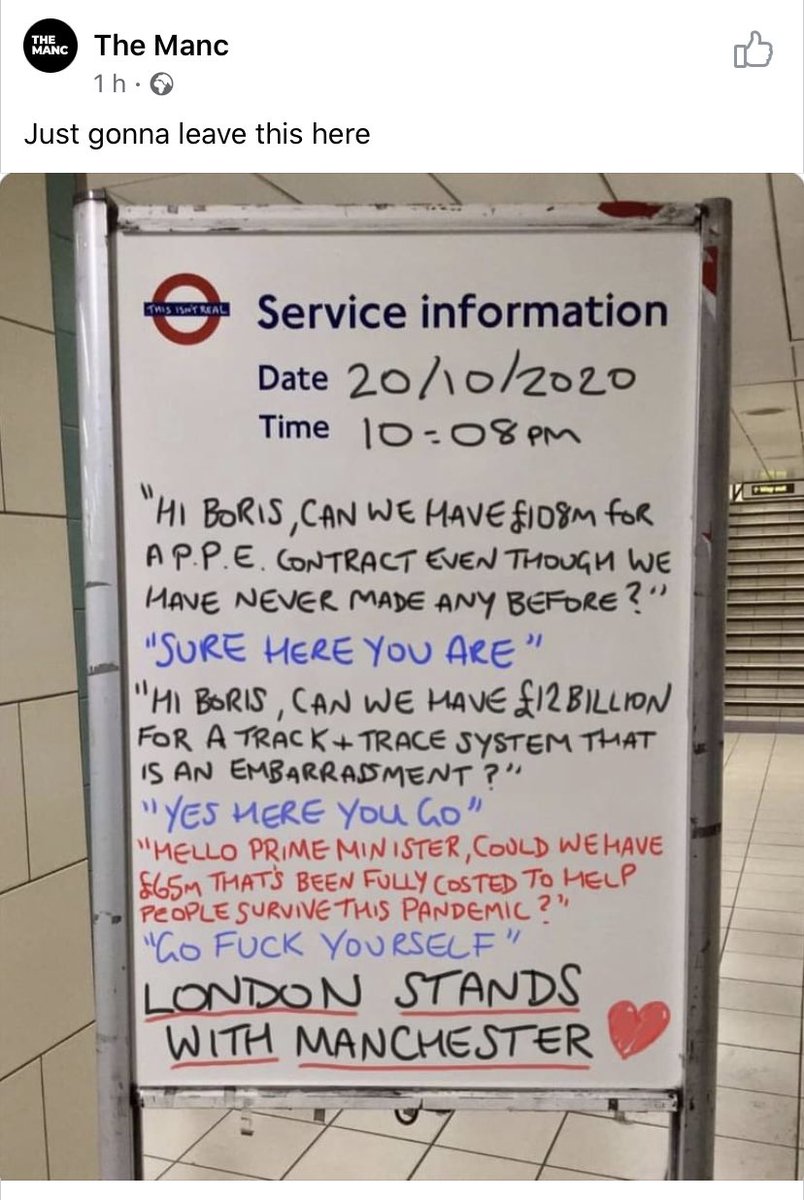 THE
MANC
The Manc
1 h ·
Just gonna leave this here
THIS ISN'T REAL
Service information
Date 20/10/2020
Time 10-08PM
"HI BORIS, CAN WE HAVE £108M FOR
A P.P.E. CONTRACT EVEN THOUGH WE
HAVE NEVER MADE ANY BEFORE?"
"SURE HERE YOU ARE"
"HI BORIS, CAN WE HAVE £12 BILLION
FOR A TRACK + TRACE SYSTEM THAT
IS AN EMBARRASSMENT?"
"YES HERE YOU GO"
"HELLO PRIME MINISTER, COULD WE HAVE
£65M THAT'S BEEN FULLY COSTED TO HELP
PEOPLE SURVIVE THIS PANDEMIC?"
"GO FUCK YOURSELF"
LONDON STANDS
WITH MANCHESTER